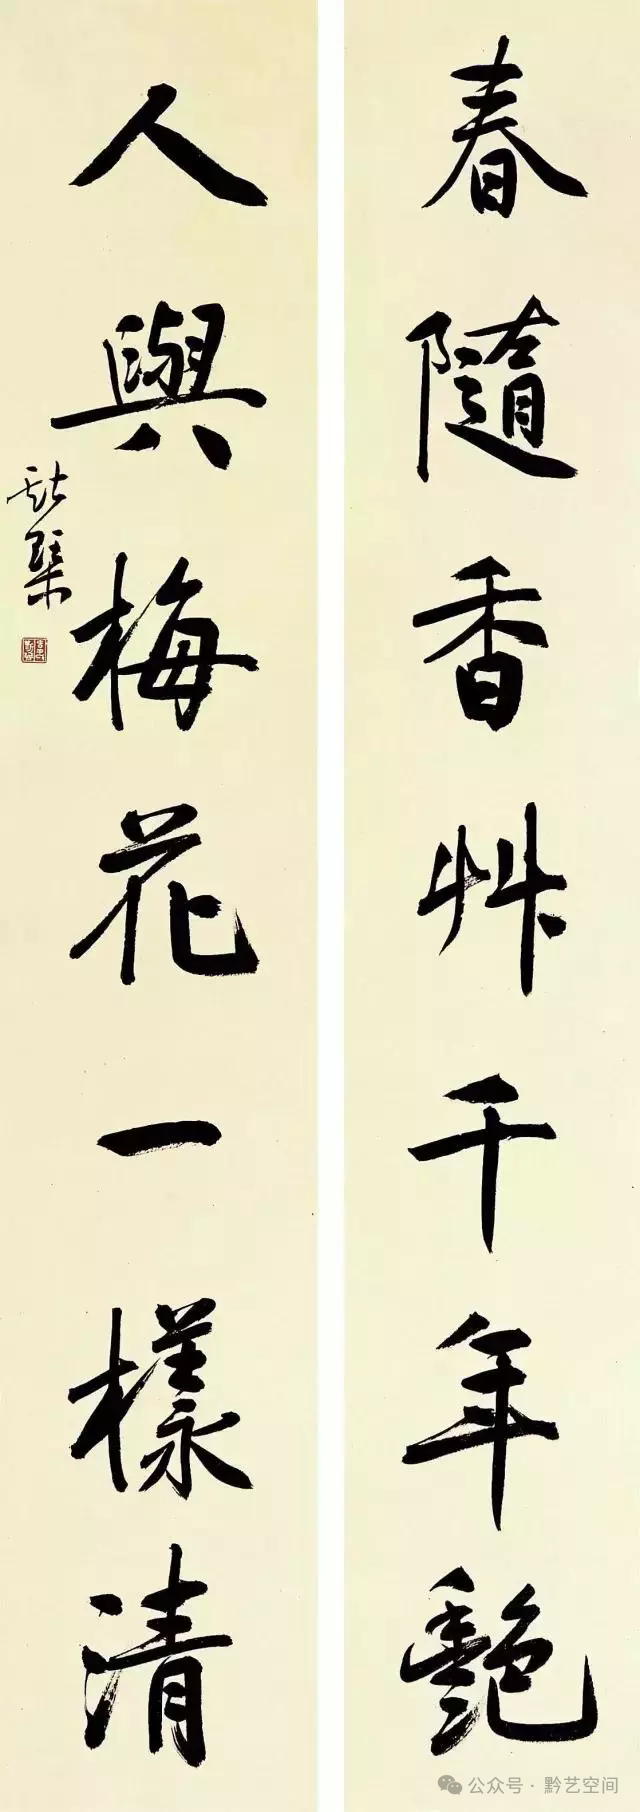 春隨香艸千年艷
人與梅花一樣清
公众号 · 黔艺空间